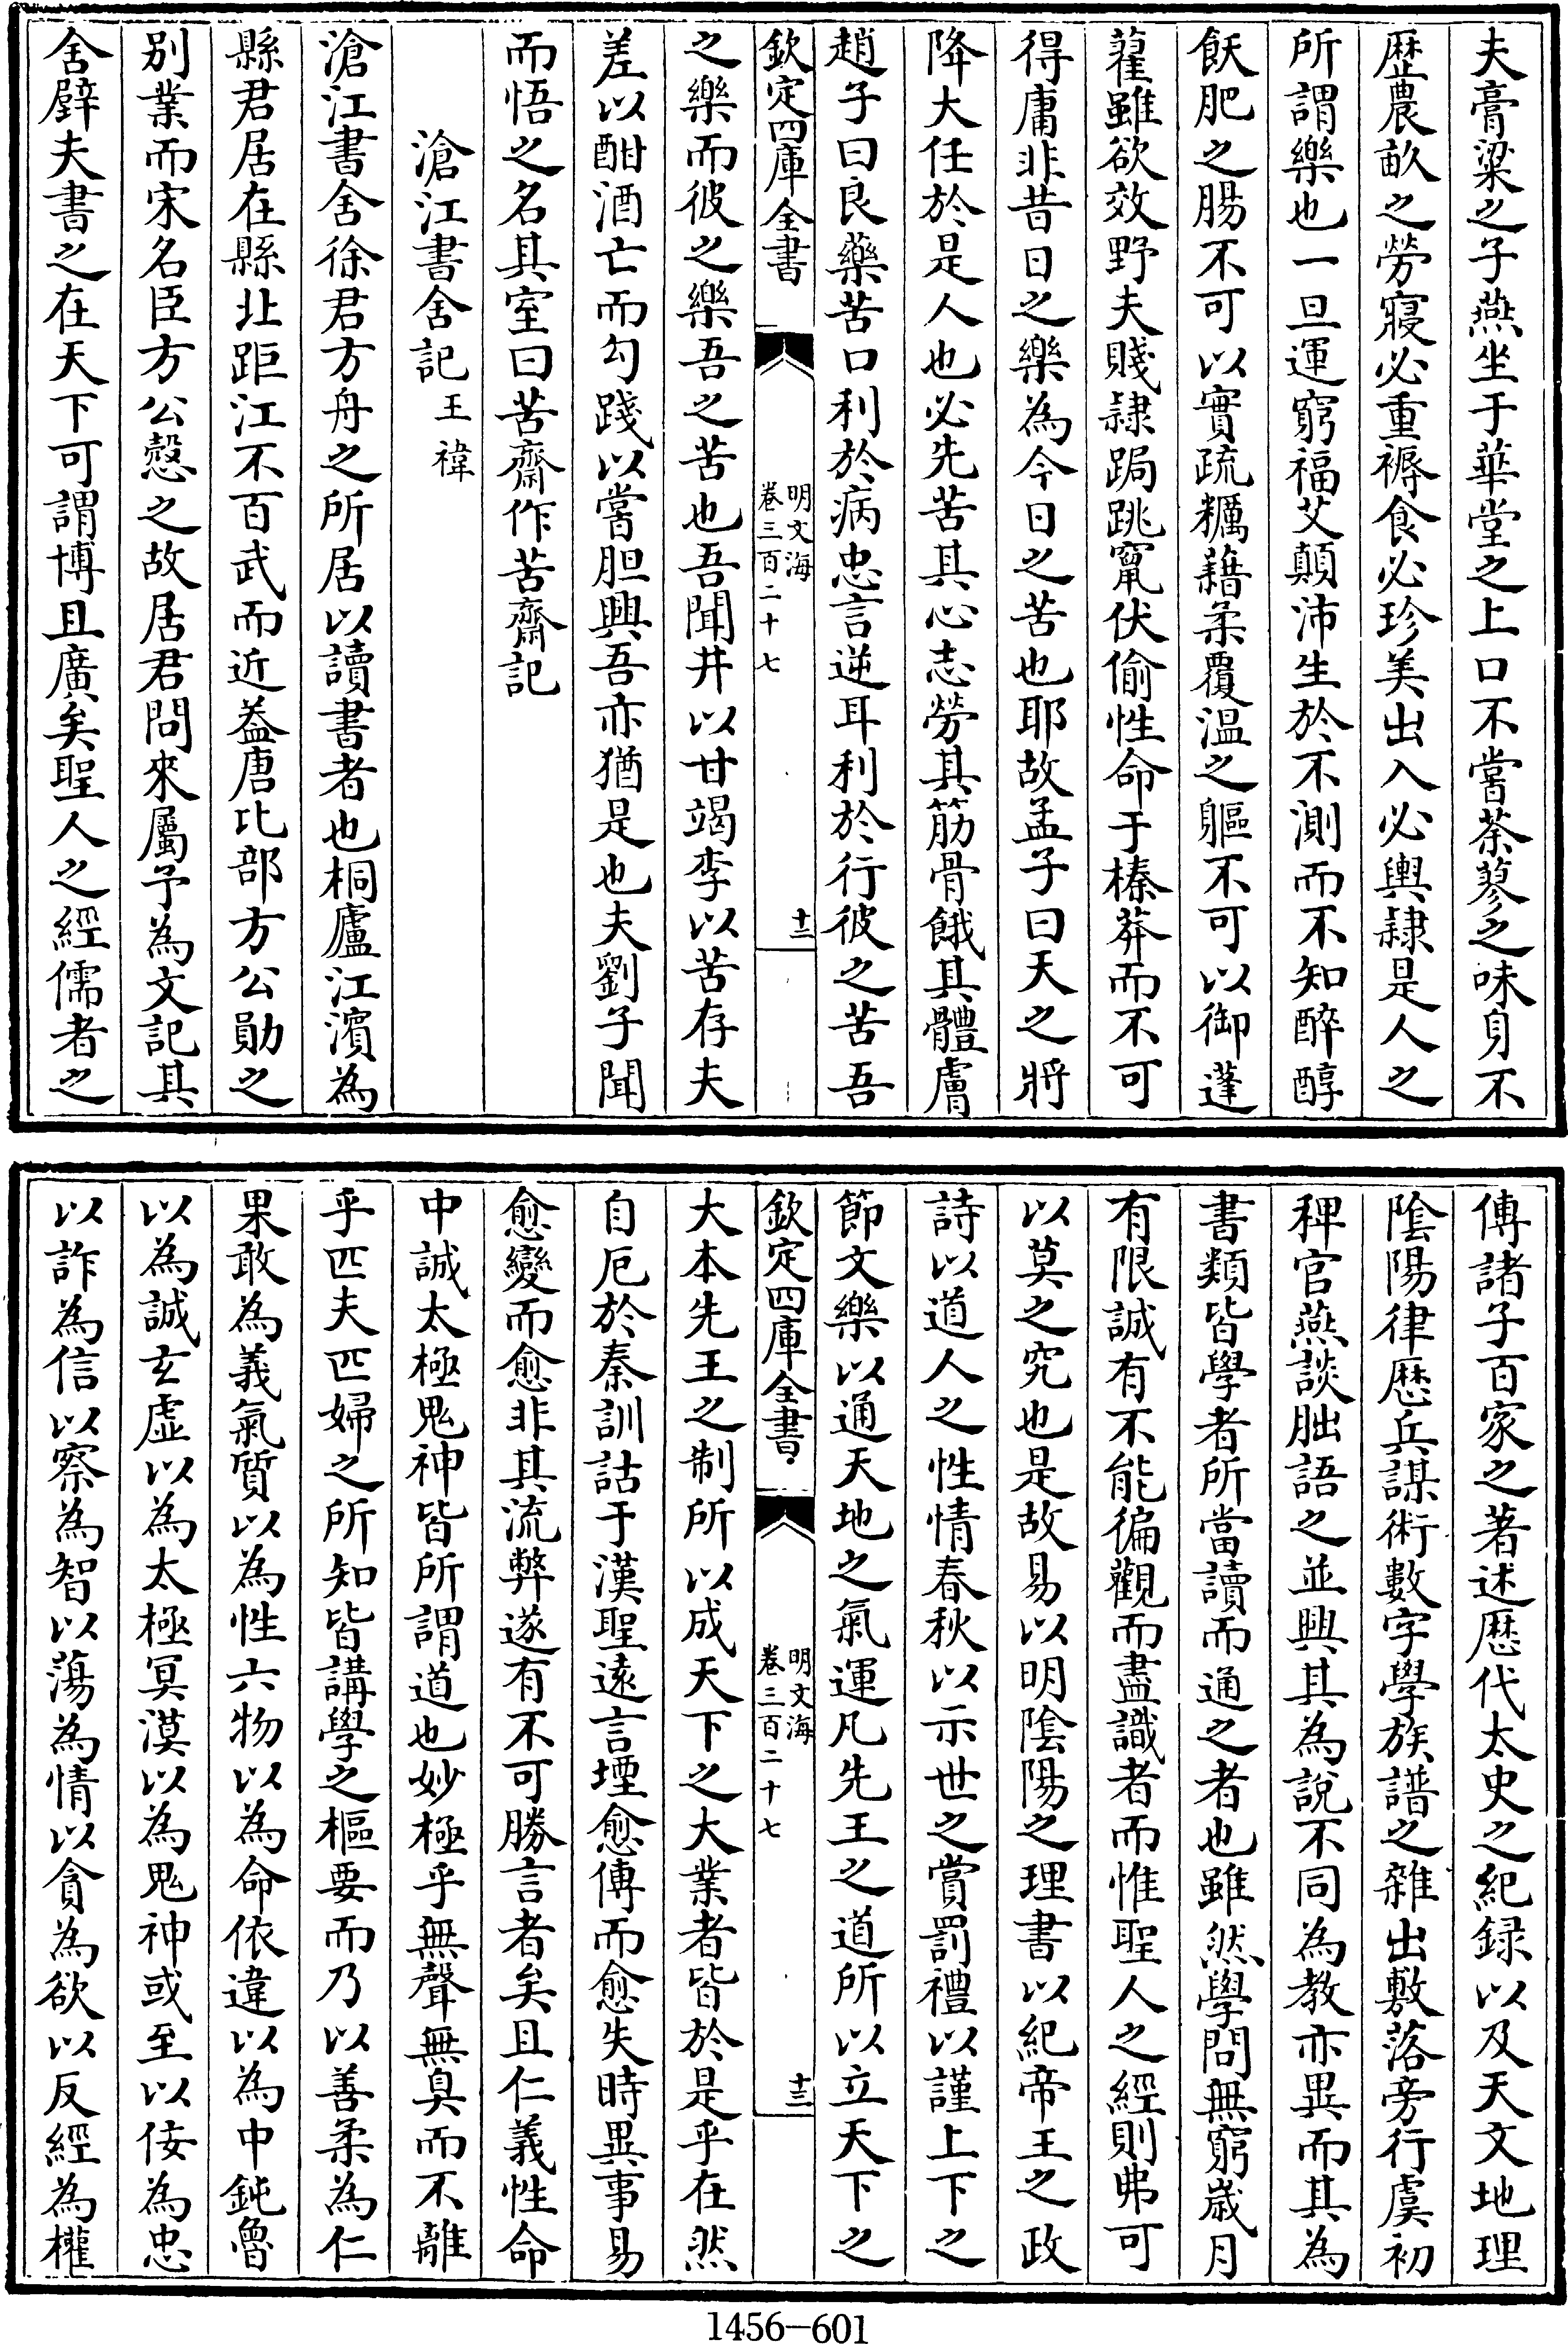 夫膏粱之子燕坐于華堂之上口不嘗荼蓼之味身不
歴農畝之勞寢必重褥食必珍美出入必輿隷是人之
所謂樂也一旦運窮福艾顛沛生於不測而不知醉醇
飫肥之腸不可以實疏糲藉柔覆温之軀不可以御蓬
藿雖欲效野夫賤隷跼跳竄伏偷性命于榛莽而不可
得庸非昔日之樂為今日之苦也耶故孟子曰天之將
降大任於是人也必先苦其心志勞其筋骨餓其體膚
趙子曰良藥苦口利於病忠言逆耳利於行彼之苦吾
欽定四庫全書
明文海
卷三百二十七
十二
之樂而彼之樂吾之苦也吾聞井以甘竭李以苦存夫
差以酣酒亡而勾踐以嘗胆興吾亦猶是也夫劉子聞
而悟之名其室曰苦齋作苦齋記
滄江書舍記 王禕
滄江書舍徐君方舟之所居以讀書者也桐廬江濱為
縣君居在縣北距江不百武而近葢唐比部方公勛之
别業而宋名臣方公慤之故居君問來屬予為文記其
舍壁夫書之在天下可謂博且廣矣聖人之經儒者之
傳諸子百家之著述歴代太史之紀録以及天文地理
隂陽律歴兵謀術數字學族譜之雜出敷落旁行虞初
稗官燕談朏語之並興其為說不同為教亦異而其為
書類皆學者所當讀而通之者也雖然學問無窮歳月
有限誠有不能徧觀而盡識者而惟聖人之經則弗可
以莫之究也是故易以明隂陽之理書以紀帝王之政
詩以道人之性情春秋以示世之賞罰禮以謹上下之
節文樂以通天地之氣運凡先王之道所以立天下之
欽定四庫全書
明文海
卷三百二十七
十三
大本先王之制所以成天下之大業者皆於是乎在然
自厄於秦訓詁于漢聖遠言堙愈傳而愈失時異事易
愈變而愈非其流弊遂有不可勝言者矣且仁義性命
中誠太極鬼神皆所謂道也妙極乎無聲無臭而不離
乎匹夫匹婦之所知皆講學之樞要而乃以善柔為仁
果敢為義氣質以為性六物以為命依違以為中鈍魯
以為誠玄虚以為太極冥漠以為鬼神或至以佞為忠
以詐為信以察為智以蕩為情以貪為欲以反經為權
1456-601